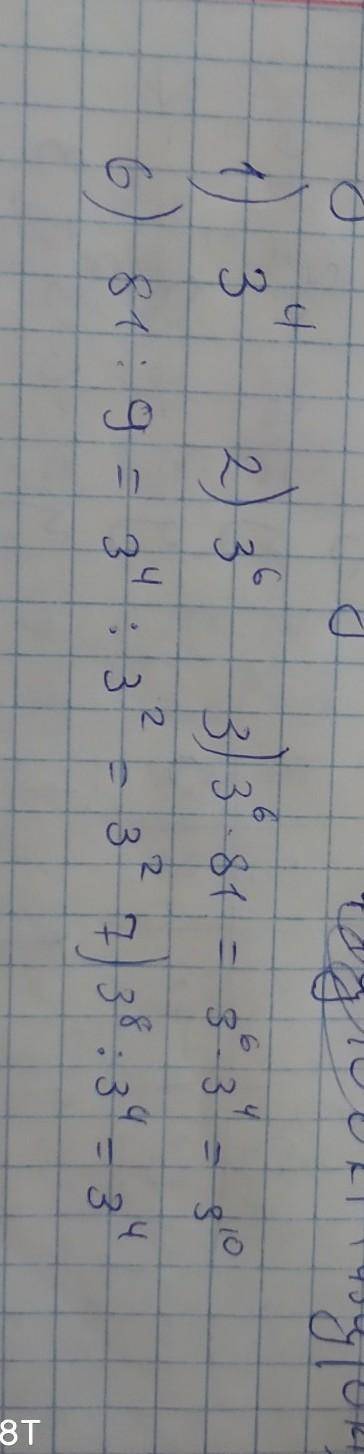 1) 3⁴ 2) 3⁶ 3) 3⁶ · 81 = 3⁶ · 3⁴ = 3¹⁰
6) 81 : 9 = 3⁴ : 3² = 3² 7) 3⁸ : 3⁴ = 3⁴
8T